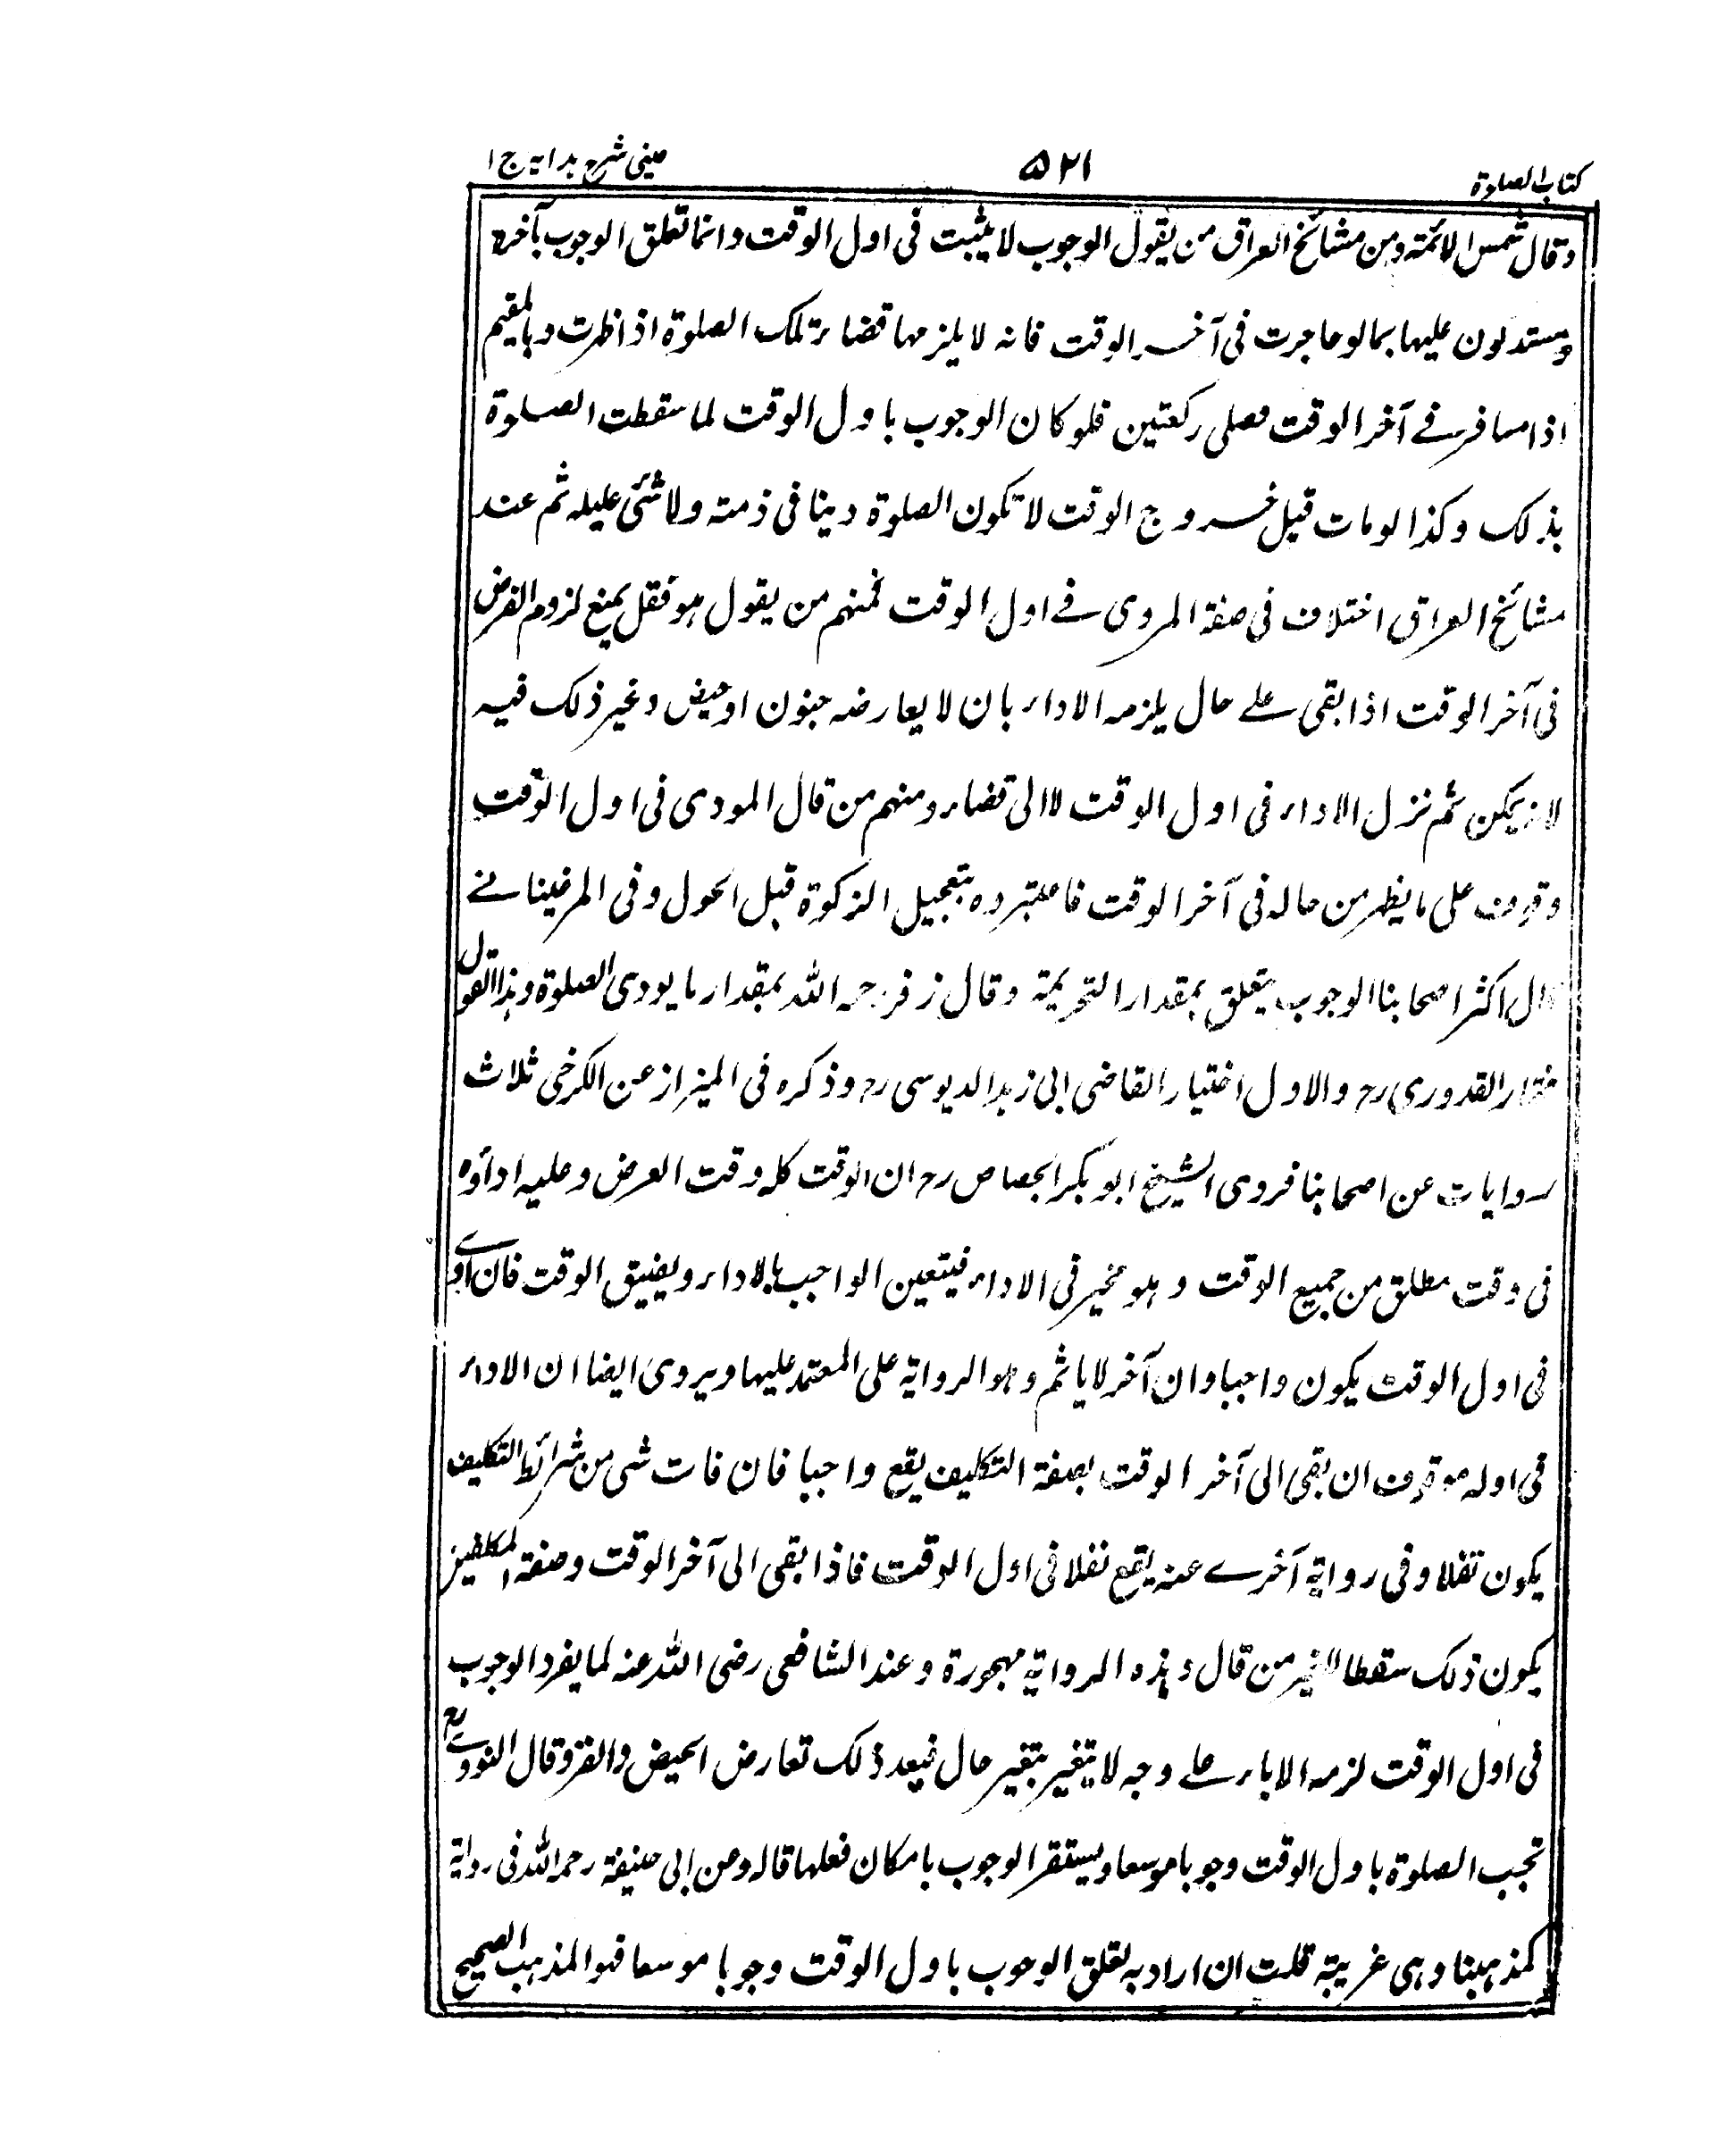 كتاب الصلوة
٥٢١
عينى شرح هداية ج ١
وقال شمس الائمة ومن مشائخ العراق من يقول الوجوب لا يثبت فى اول الوقت وانما تعلق الوجوب بآخره
ويستدلون عليها بما لو حاجرت فى آخر الوقت فانه لا يلزمها قضاء تلك الصلوة اذا ظهرت وبالمقيم
اذا سافر فے آخر الوقت فصلى ركعتين فلو كان الوجوب باول الوقت لما سقطت الصلوة
بذلك وكذا لو مات قبل خروج الوقت لا تكون الصلوة دينا فى ذمته ولا شئى عليه ثم عند
مشائخ العراق اختلاف فى صفة المروى فے اول الوقت فمنهم من يقول هو نفل يمنع لزوم الفرض
فى آخر الوقت اذا بقى علے حال يلزمه الاداء بان لا يعارضه جنون او حيض وغير ذلك فيه
لانه يمكن ثم نزل الاداء فى اول الوقت لا الى قضاء ومنهم من قال المودى فى اول الوقت
وقوف على ما يظهر من حاله فى آخر الوقت فاعتبروه بتعجيل الزكوة قبل الحول وفى المرغينانے
قال اكثر اصحابنا الوجوب يتعلق بمقدار التحريمة وقال زفر رحمه الله بمقدار ما يودى الصلوة وهذا القول
مختار القدورى رح والاول اختيار القاضى ابى زيد الدبوسى رح وذكره فى الميزان عن الكرخى ثلاث
روايات عن اصحابنا فروى الشيخ ابو بكر الجصاص رح ان الوقت كله وقت الفرض وعليه اداؤه
فى وقت مطلق من جميع الوقت وهو مخير فى الاداء فيتعين الواجب بالاداء ويضيق الوقت فان ادے
فى اول الوقت يكون واجبا وان آخر لا ياثم وهو الرواية على المعتمد عليها ويروى ايضا ان الاداء
فى اوله موقوف ان بقى الى آخر الوقت بصفة التكليف يقع واجبا فان فات شى من شرائط التكليف
يكون نفلا وفى رواية آخرے عنه يقع نفلا فى اول الوقت فاذا بقى الى آخر الوقت وصفة المكلفين
يكون ذلك سقطا للغير من قال وهذه الرواية مهجورة وعند الشافعى رضى الله عنه لما يفرد الوجوب
فى اول الوقت لزمه الاباء علے وجه لا يتغير بتغير حال فبعد ذلك تعارض الحيض والفر وقال النووے رح
تجب الصلوة باول الوقت وجوبا موسعا ويستقر الوجوب بامكان فعلها قاله وعن ابى حنيفة رحمه الله فى رواية
كمذهبنا وهى غريبة قلت ان اراد به تعلق الوجوب باول الوقت وجوبا موسعا فهو المذهب الصحيح